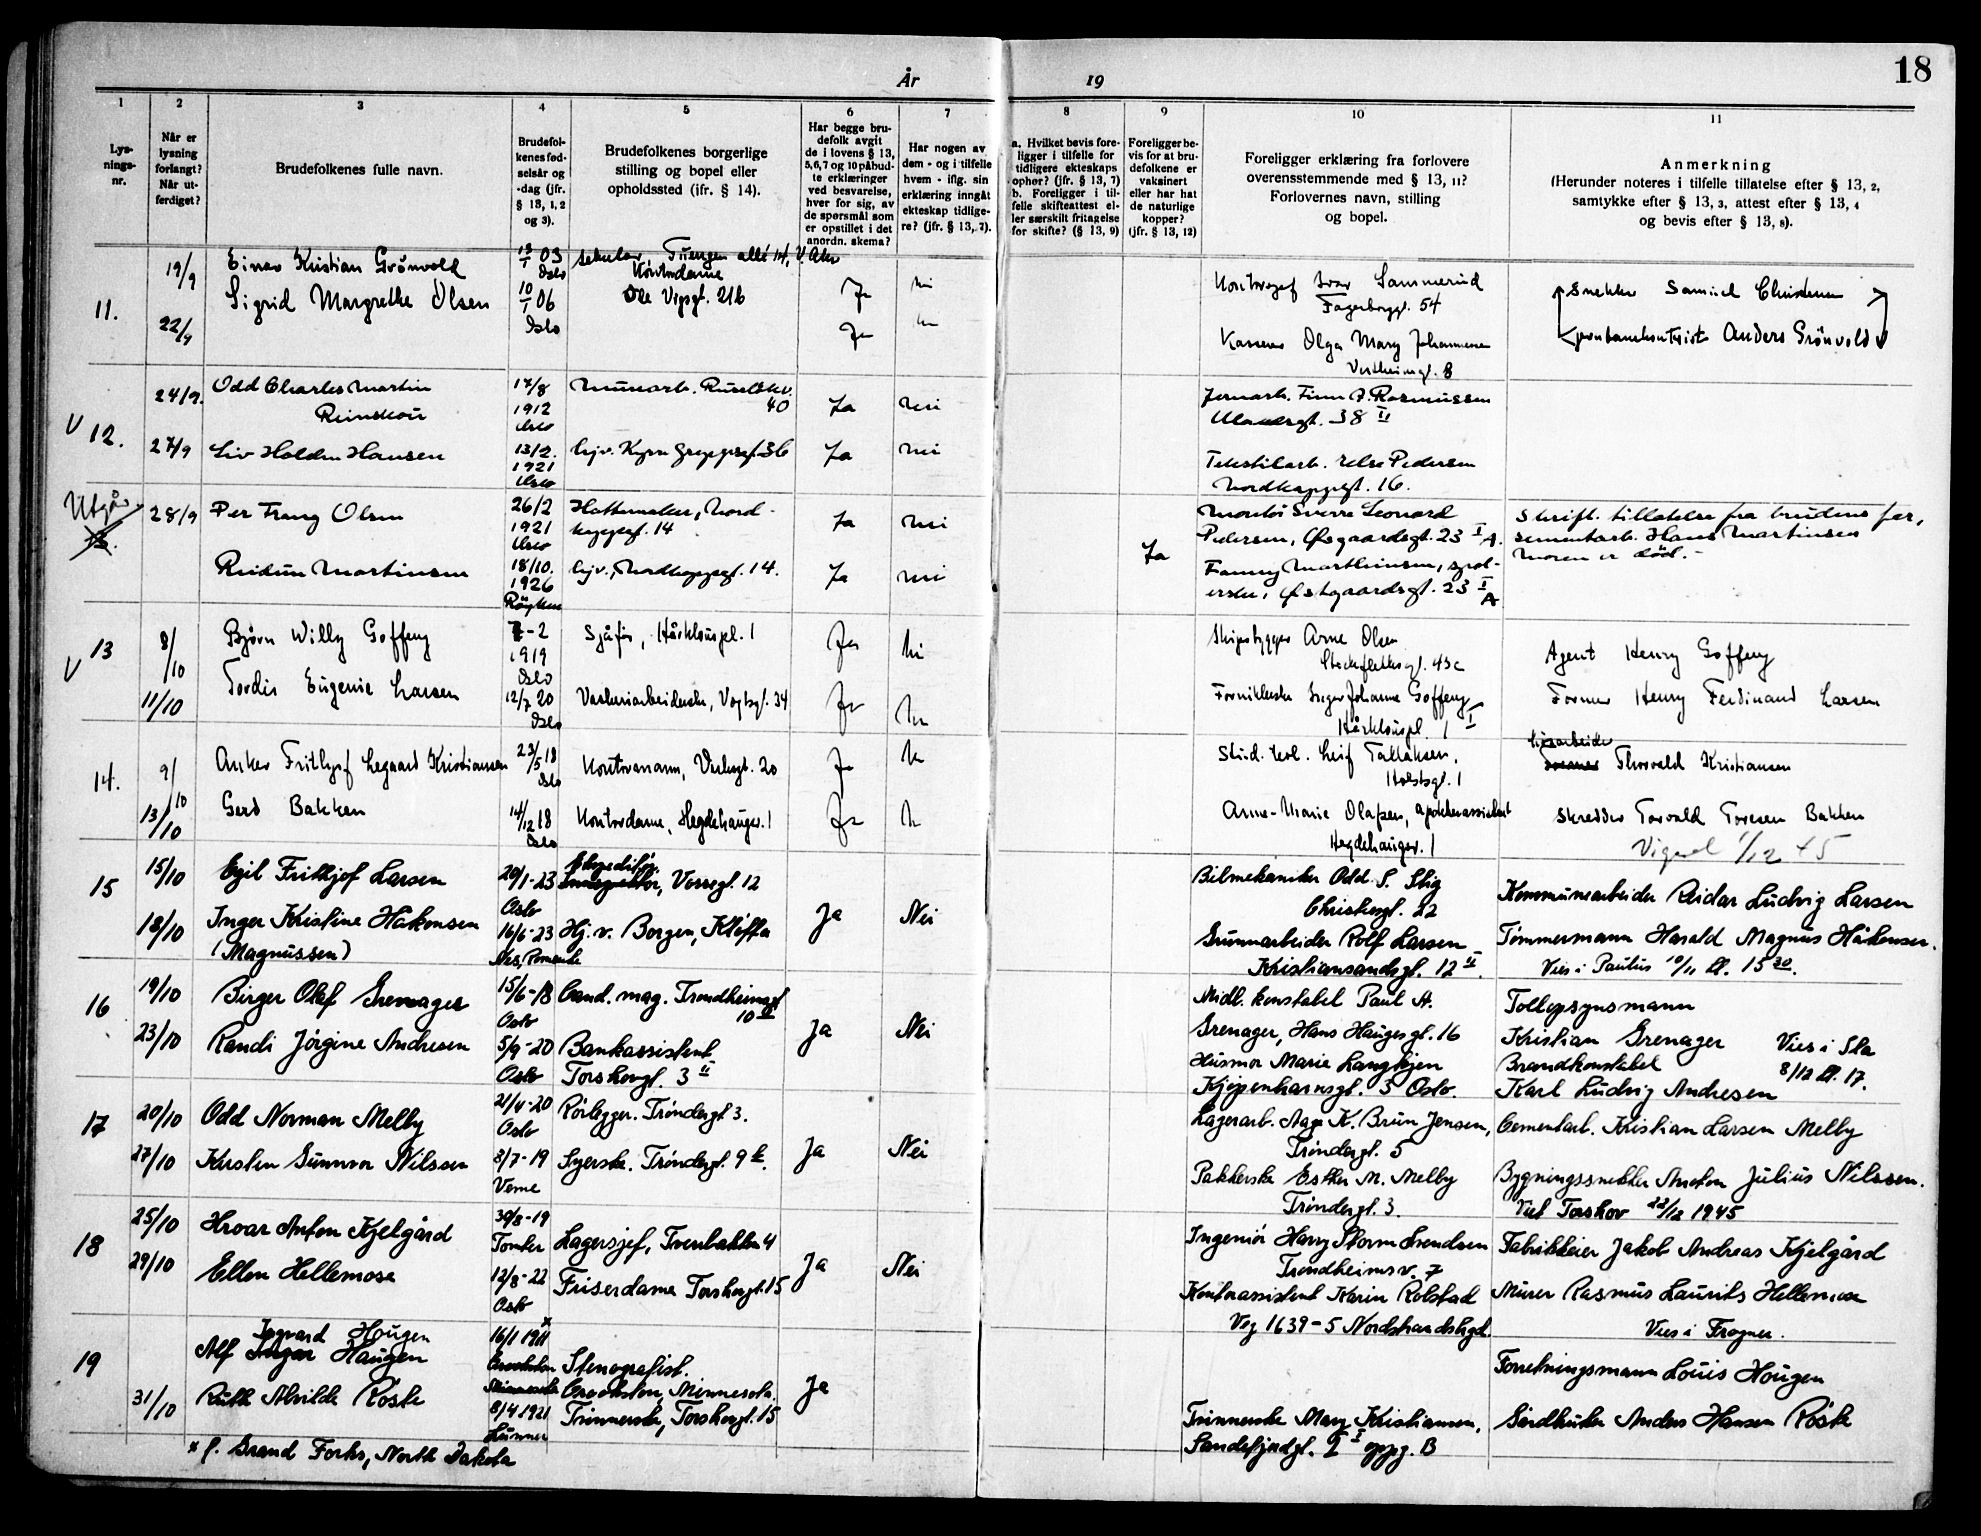 År 19
18
1
2
3
4
5
6
7
8
9
10
11
Lys-
nings-
nr.
Når er
lysning
forlangt?
Når ut-
ferdiget?
Brudefolkenes fulle navn.
Brudefol-
kenes fød-
selsår og
-dag (jfr.
§ 13, 1, 2
og 3).
Brudefolkenes borgerlige
stilling og bopel eller
opholdssted (ifr. § 14).
Har begge bru-
defolk avgit
de i lovens § 13,
5,6,7 og 10 påbud-
te erklæringer
ved besvarelse,
hver for sig, av
de spørsmål som
er opstillet i det
anordn. skema?
Har nogen av
dem - og i tilfelle
hvem - iflg. sin
erklæring inngåt
ekteskap tidlige-
re? (jfr. § 13, 7).
a. Hvilket bevis fore-
ligger i tilfelle for
tidligere ekteskaps
ophør? (jfr. § 13, 7)
b. Foreligger i til-
felle skifteattest el-
ler særskilt fritagelse
for skifte? (§ 13, 9)
Foreligger be-
vis for at bru-
defolkene er
vaksinert
eller har hat
de naturlige
kopper?
(jfr. § 13, 12)
Foreligger erklæring fra forlovere
overensstemmende med § 13, 11?
Forlovernes navn, stilling
og bopel.
Anmerkning
(Herunder noteres i tilfelle tillatelse efter § 13, 2,
samtykke efter § 13, 3, attest efter § 13, 4
og bevis efter § 13, 8).
11.
19/9
22/9
Einar Kristian Grönvold
Sigrid Margrethe Olsen
13/1 03
Oslo
10/1 06
Oslo
Tuengen allé 14, V. Aker
Kontordame
Ole Vigsgt. 21b
Ja
Ja
Ivar Sammerud
Fagerborggt. 54
Olga Mary Johannesen
8
Snekker Samuel
Anders Grönvold
V 12.
24/9.
27/9
Odd Charles Martin
Reinskou
Liv Holden Hansen
17/8
1912
Oslo
13/2.
1921
Oslo
40
36
Ja
Ja
nei
nei
Jernarb. Finn A. Rasmussen
38 II
Tekstilarb. Else Pedersen
Nordkappgt. 16.
Utgår
28/9
Per Franz Olsen
Reidun Martinsen
26/2
1921
Oslo
18/10.
1926
Röyken
Hattemaker, Nord-
kappgt. 14
Nordkappgt. 14.
Ja
Ja
nei
nei
Ja
Montör Sverre Leonard
Pedersen, Östgaardsgt. 23 I A.
Fanny Marthinsen, spol-
erske, Östgaardsgt. 23 I
A
Skriftl. tillatelse fra brudens far,
sementarb. Hans Martinsen
Moren er död.-
V 13
8/10
11/10
Björn Willy Goffeng
Tordis Eugenie Larsen
7-2
1919
Oslo
12/7 20
Oslo
Sjåfør, Hårklouspl. 1
Vaskeriarbeiderske, Vogtsgt. 34
Ja
Ja
Skipsbygger Arne Olsen
Stockflethsgt. 43c
Fornikkerske Inger Johanne Goffeng
Hårklouspl. 1 I
Agent Henry Goffeng
Former Henry Ferdinand Larsen
14.
9/10
13/10
Anker Frithjof Legaard Kristiansen
Gerd Bakken
23/5 18
Oslo
14/12 18
Oslo
Kontormann, 20
Kontordame, Hegdehaugsv. 1
Ja
Ja
Stud. real. Leif Tallaksen,
Holstsgt. 1
Anne-Marie Olafsen, apotekerassistent
Hegdehaugsv. 1
Thorvald Kristiansen
Skredder Torvald Toresen Bakken
Vigsel 1/12 45
15
15/10
18/10
Egil Frithjof Larsen
Inger Kristine Håkonsen
(Magnussen)
20/1-23
Oslo
16/6-23
Nes, Romerike
Vossegt. 12
Hj. v. Borgen, Kløfta
Ja
Nei
Bilmekaniker Odd S. Stig
Christiesgt. 22
Grunnarbeider Rolf Larsen
Kristiansandsgt. 12 II.
Kommunearbeider Reidar Ludvig Larsen
Tømmermann Harald Magnus Håkonsen.
Vies i Paulus 10/11 kl. 15 30.
16
19/10
23/10
Birger Olaf Grenager
Randi Jørgine Andresen
15/6-18
Oslo
5/9-20
Oslo
Cand. mag. Trondheimsgt
10 II
Bankassistent
Torshovgt. 3 II
Ja
Nei
Midl. konstabel Paul A.
Grenager, Hans Haugesgt. 16
Husmor Marie Langkjen
Kjøpenhavnsgt. 3 Oslo.
Tollopsynsmann
Kristian Grenager
Brandkonstabel
Karl Ludvig Andresen
Vies i Sta
8/12 kl. 17.
17
20/10
27/10
Odd Norman Melby
Kirsten Gunvor Nilssen
21/4-20
Oslo
3/7-19
Verne
Rørlegger. Trøndergt 3.
Syerske. Trøndergt. 9 b.
Ja
Nei
Lagerarb. Aage K. Bruun Jensen,
Trøndergt. 5
Pakkerske Esther M. Melby
Trøndergt. 3.
Cementarb. Kristian Larsen Melby
Bygningssnekker Anton Julius Nilssen.
Viet Torshov 22/12 1945
18
25/10
29/10
Hroar Anton Kjelgård
Ellen Hellemose
30/8-19
12/8-22
Oslo
Lagersjef, Tverrbakken 4
Friserdame Torshovgt. 15
Ja
Nei
Ingeniør Harry Storm Svendsen
Trondheimsv. 7
Kontorassistent Karin Rolstad
Veg 1639-5 Nordstrandshgd.
Fabrikkeier Jakob Andreas Kjelgård
Murer Rasmus Laurits Hellemose
Vies i Frogner.
19
31/10
Ingvard Hougen
Alf Haugen
Ruth Alvilde Røste
16/1 1911 x
Crookston
Minnesota
8/4 1921
Lunner
Stenografist.
Crookston, Minnesota.
Trinnerske, Torshovgt. 15
Ja
Trinnerske Mary Kristiansen,
Sandefjordgt. 2 I oppg. B
Forretningsmann Louis Hougen
Gårdbruker Anders Hansen Røste
x f. Grand Forks, North Dakota